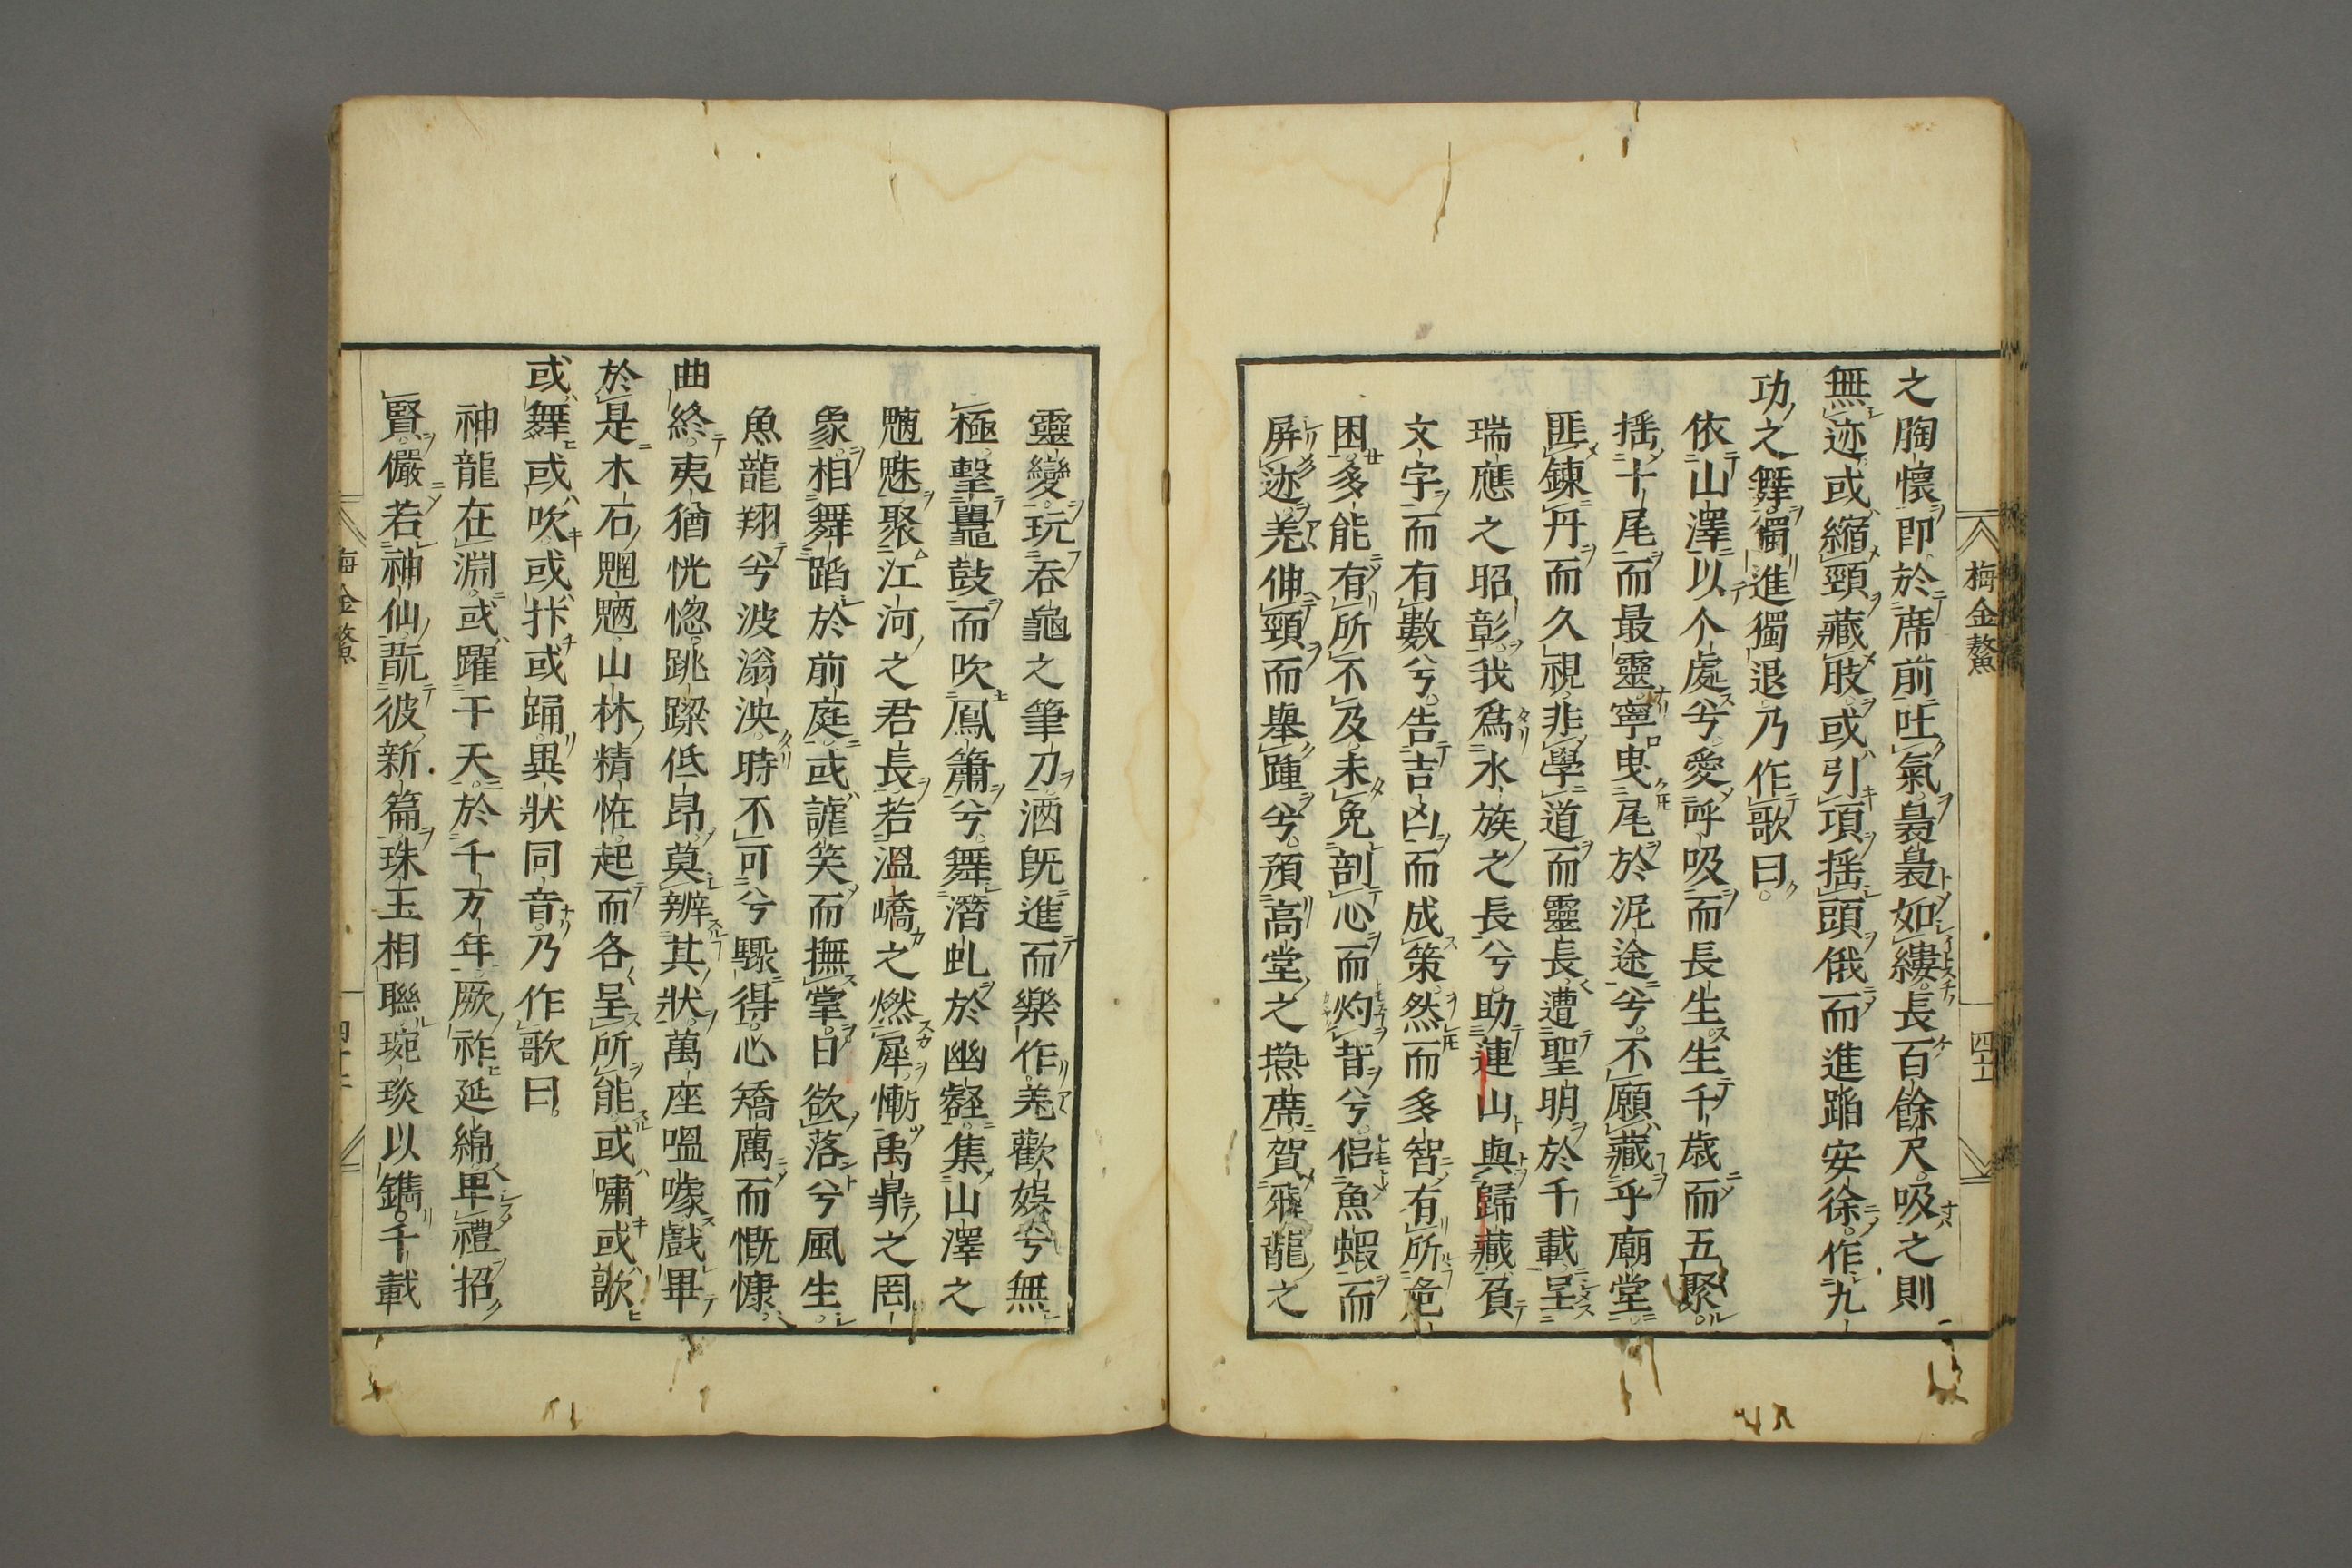 梅金鰲
四十一
之胸懷即於席前吐氣裊裊如縷長百餘尺吸之則
無迹或縮頸藏肢或引項搖頭俄而進蹈安徐作九
功之舞獨進獨退乃作歌曰
依山澤以介處兮愛呼吸而長生生千歲而五聚
搖十尾而最靈寧曳尾於泥途兮不願藏乎廟堂
匪鍊丹而久視非學道而靈長遭聖明於千載呈
瑞應之昭彰我爲水族之長兮助連山與歸藏負
文字而有數兮告吉凶而成策然而多智有所危
困多能有所不及未免剖心而灼背兮侶魚蝦而
屏迹羌伸頸而舉踵兮預高堂之燕席賀飛龍之
靈變玩吞龜之筆力酒旣進而樂作羌歡娛兮無
極擊鼉鼓而吹鳳簫兮舞潛虬於幽壑集山澤之
魑魅聚江河之君長若溫嶠之燃犀慚禹鼎之罔
象相舞蹈於前庭或謔笑而撫掌日欲落兮風生
魚龍翔兮波滃泱時不可兮驟得心矯厲而慨慷
曲終夷猶恍惚跳躍低昂莫辨其狀萬座嗢噱戲畢
於是木石魍魎山林精怪起而各呈所能或嘯或歌
或舞或吹或抃或踊異狀同音乃作歌曰
神龍在淵或躍于天於千万年厥祚延綿卑禮招
賢儼若神仙翫彼新篇珠玉相聯琬琰以鐫千載
梅金鰲
四十二